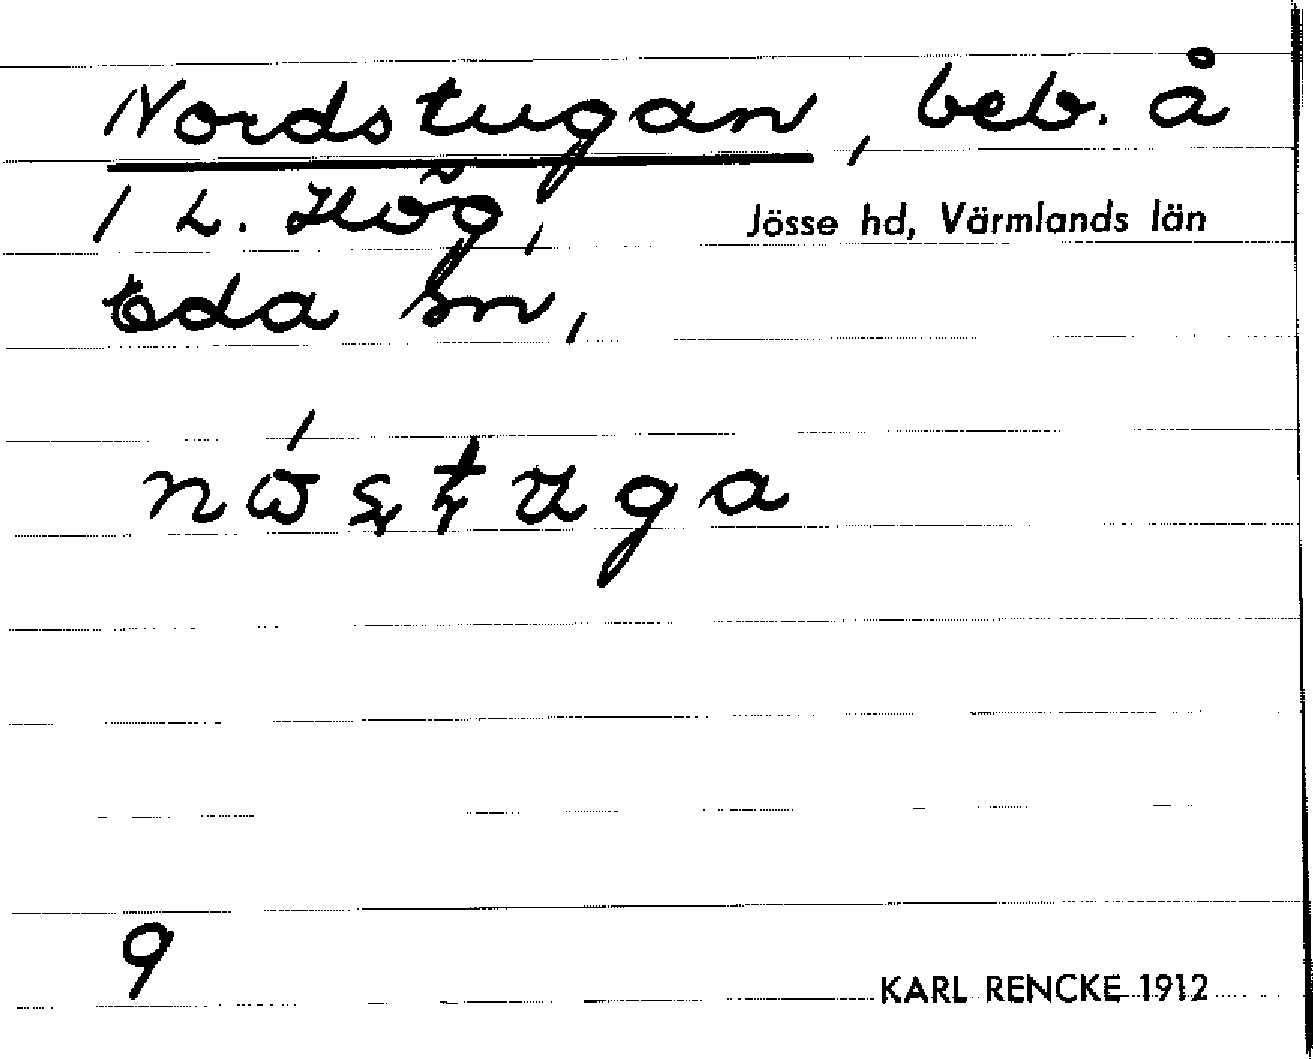 Nordstugan, beb. å
1 L. Hög, Jösse hd, Värmlands län
Eda sn,
9
KARL RENCKE 1912